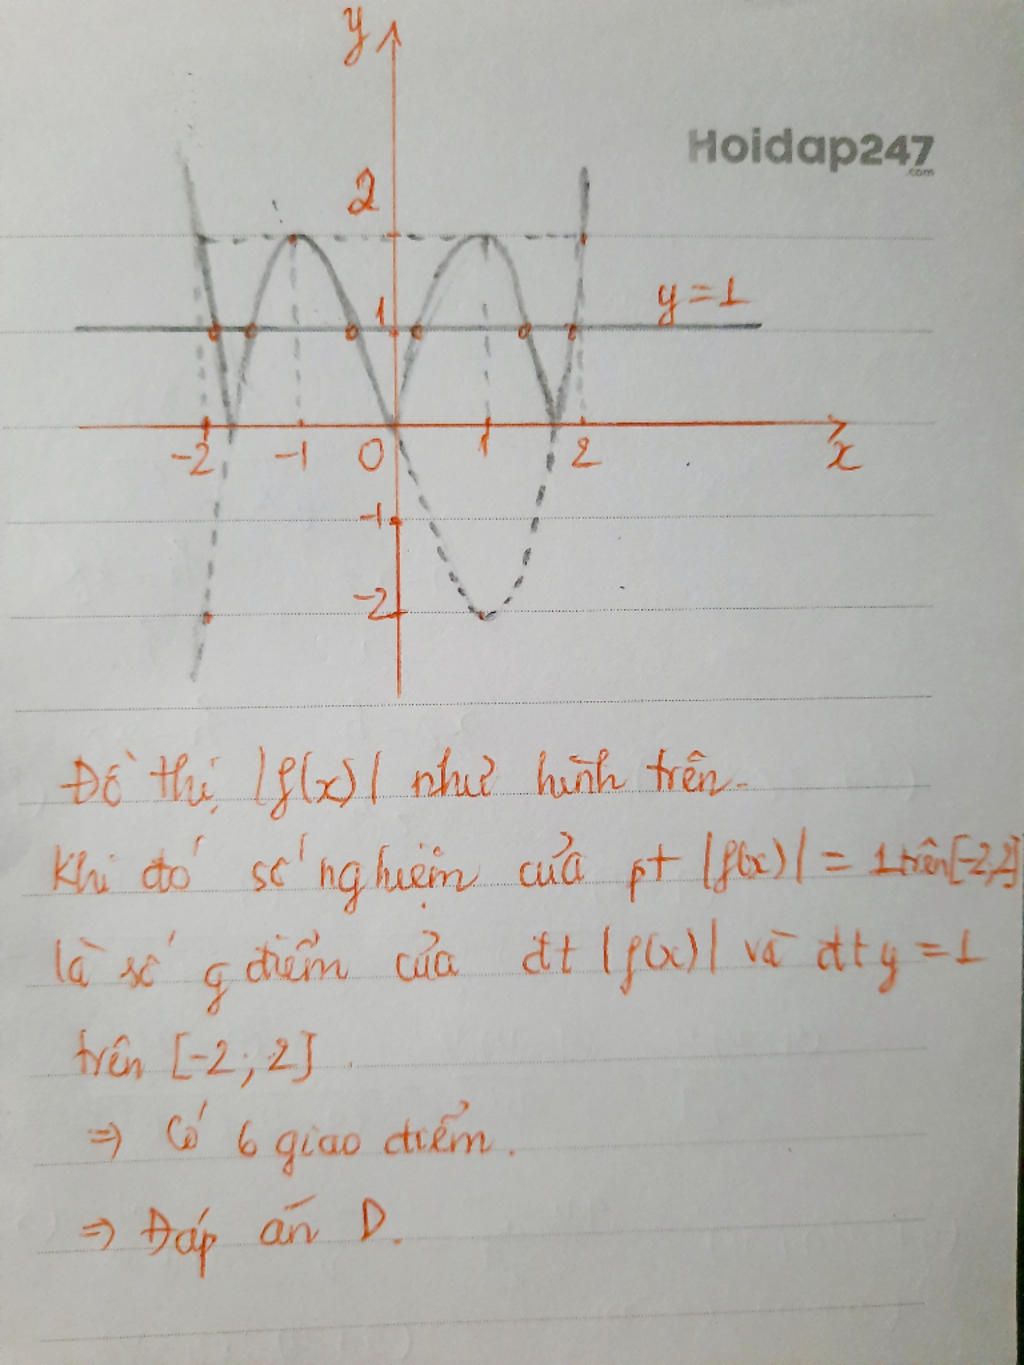 y
Hoidap247
.com
2
y = 1
1
-2 -1 0 1 2 x
-1
-2
Đồ thị |f(x)| như hình trên.
Khi đó số nghiệm của pt |f(x)| = 1 trên [-2;2]
là số g điểm của đt |f(x)| và đt y = 1
trên [-2; 2].
⇒ Có 6 giao điểm.
⇒ Đáp án D.